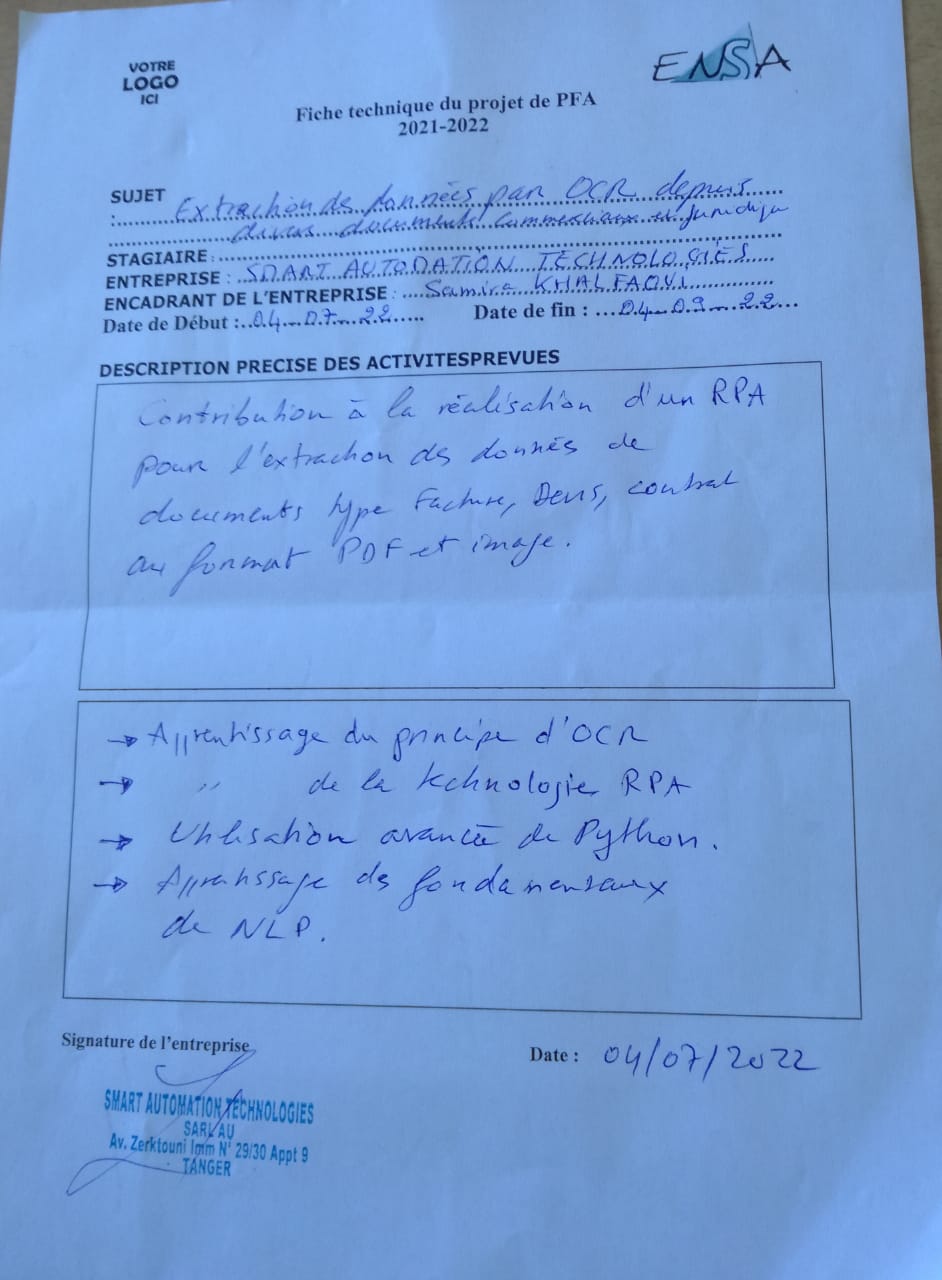 VOTRE
LOGO
ICI
ENSA
Fiche technique du projet de PFA
2021-2022
SUJET
: Extraction de données par OCR depuis
divers documents commerciaux et juridiqu
STAGIAIRE :
ENTREPRISE : SMART AUTOMATION TECHNOLOGIES
ENCADRANT DE L'ENTREPRISE : Samira KHALFAOUI
Date de Début : 04-07-22 Date de fin : 04-09-22
DESCRIPTION PRECISE DES ACTIVITESPREVUES
Contribution à la réalisation d'un RPA
pour l'extraction des donnés de
documents type Facture, Devis, contrat
au format PDF et image.
→ Apprentissage du principe d'OCR
→ " de la technologie RPA
→ Utilisation avancée de Python.
→ Apprentissage des fondamentaux
de NLP.
Signature de l'entreprise
Date : 04/07/2022
SMART AUTOMATION TECHNOLOGIES
SARL AU
Av. Zerktouni Imm N° 29/30 Appt 9
TANGER